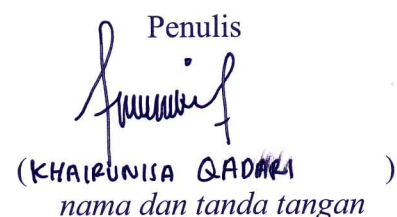 Penulis
(KHAIRUNISA QADARI )
nama dan tanda tangan